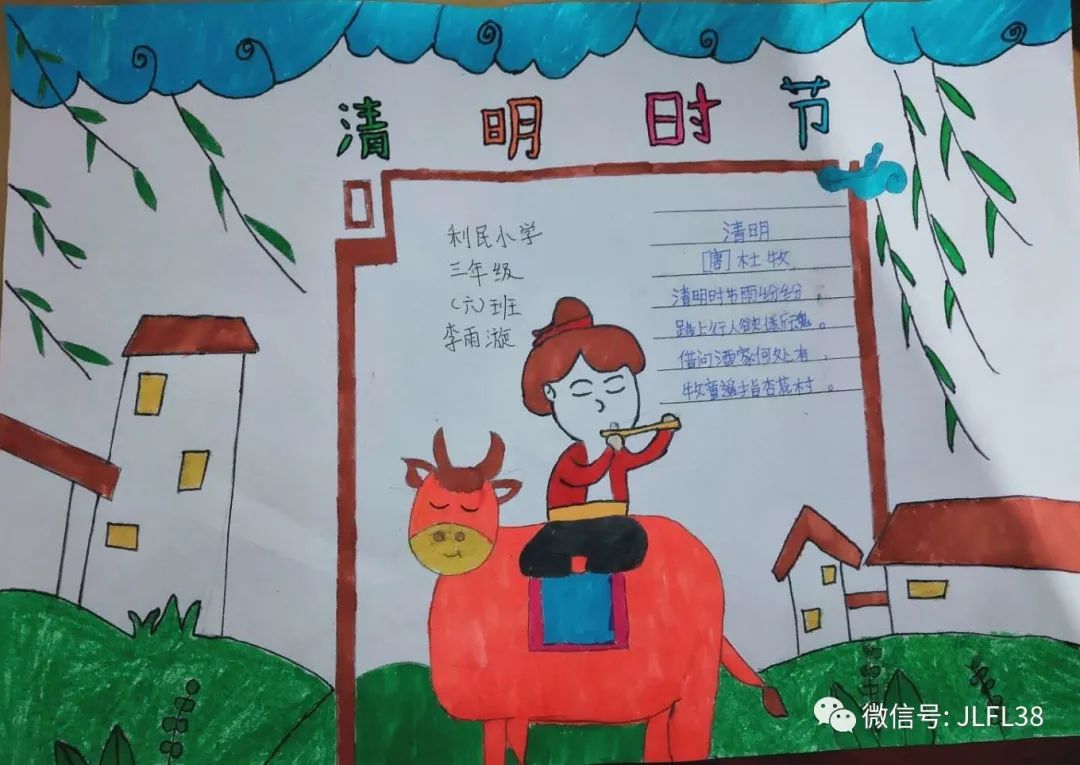 清明时节
利民小学
三年级
(六)班
李雨漩
清明
[唐]杜牧
清明时节雨纷纷，
路上行人欲断魂。
借问酒家何处有，
牧童遥指杏花村。
微信号: JLFL38